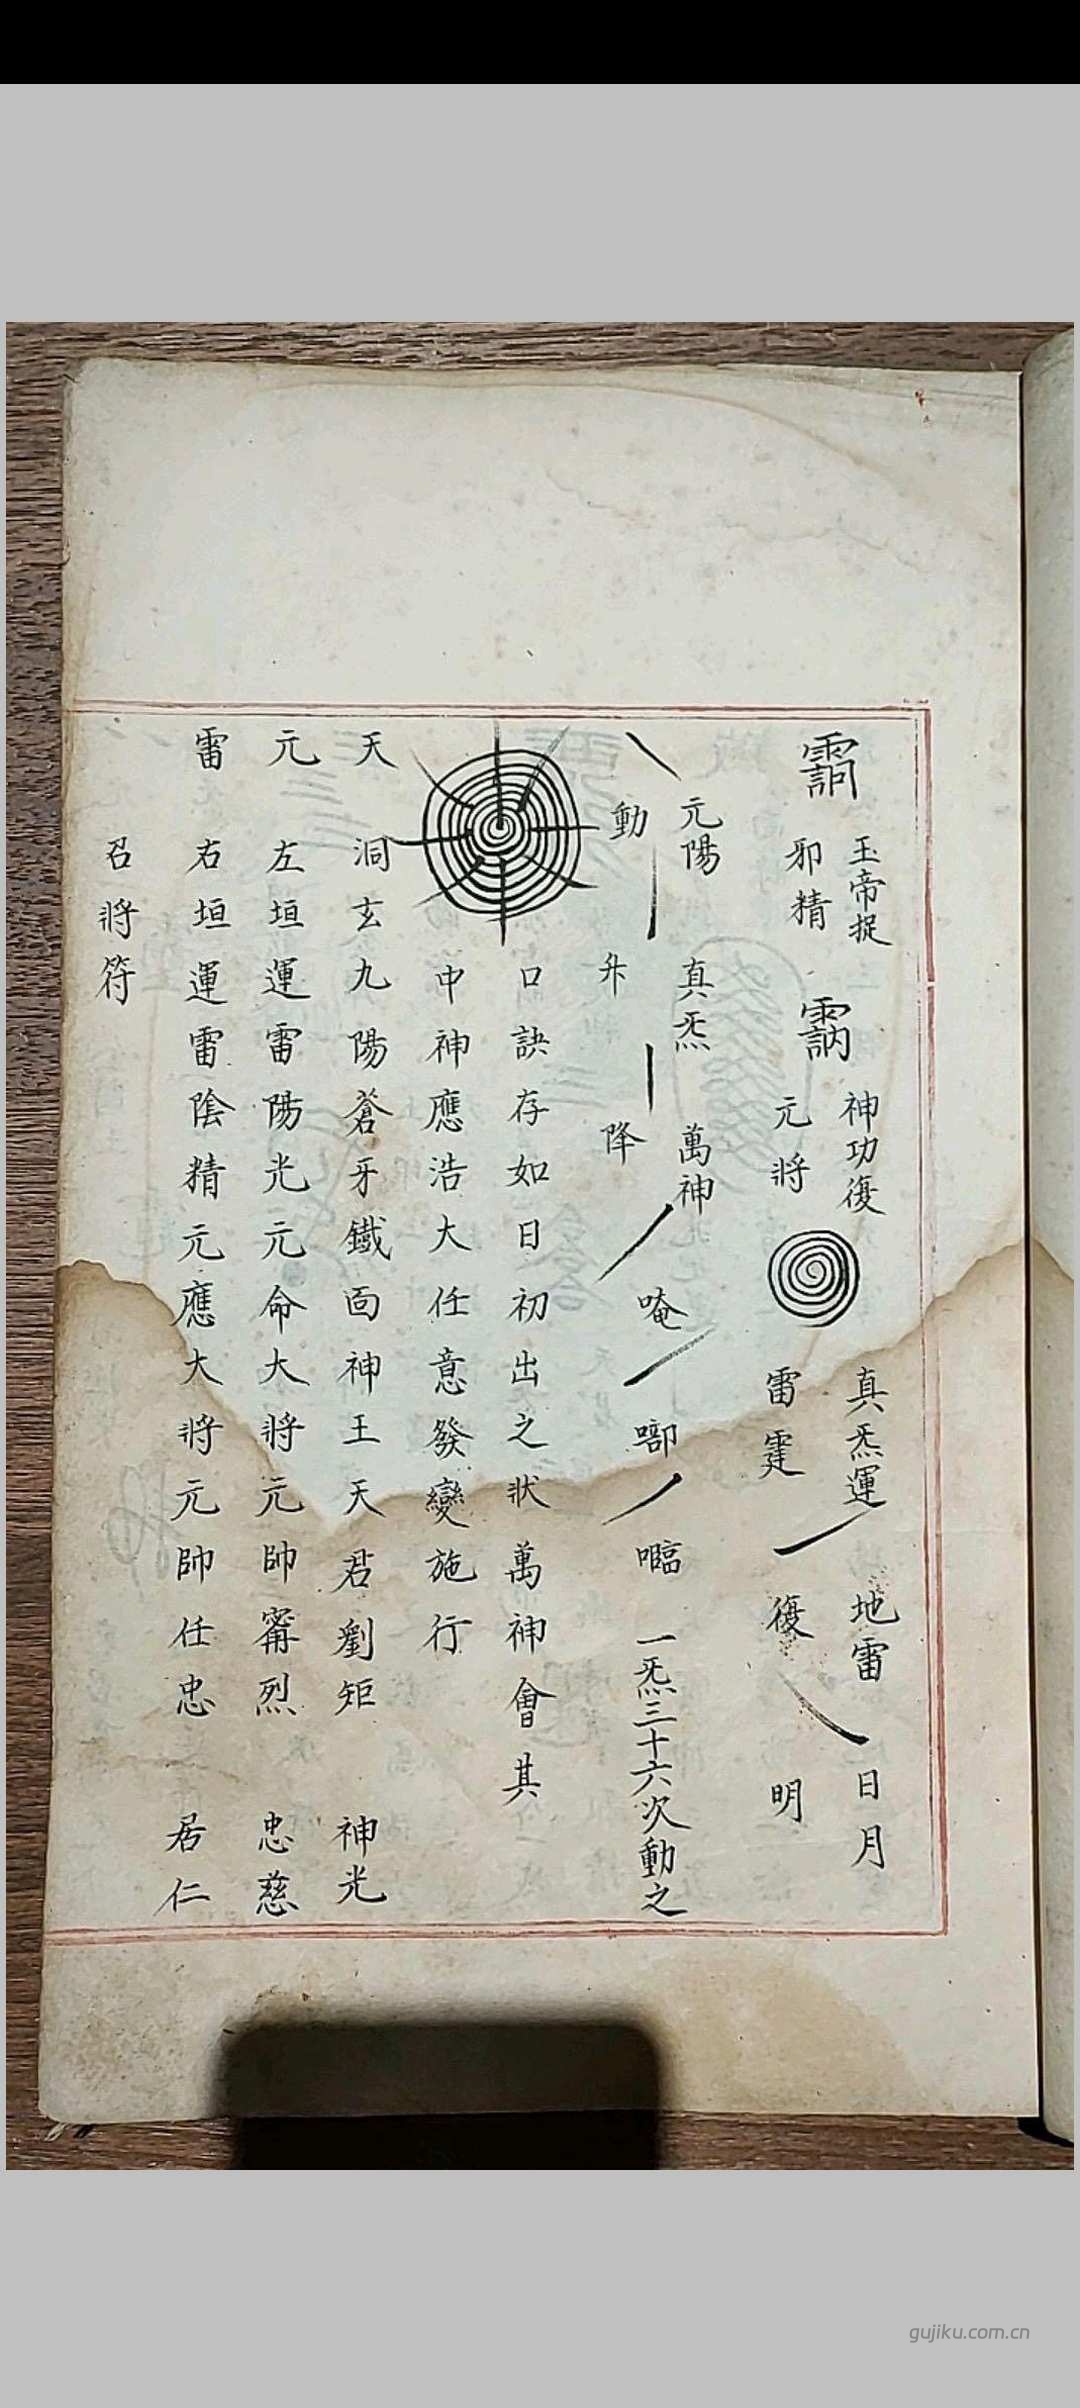 玉帝捉
邪精
神功復
元將
真炁運
雷霆
地雷
復
日月
明
元陽
動
真炁
升
萬神
降
唵
㗐
𠾱
一炁三十六次動之
口訣存如日初出之狀萬神會其
中神應浩大任意發變施行
天洞玄九陽蒼牙鐵面神王天君劉矩 神光
元左垣運雷陽光元命大將元帥甯烈 忠慈
雷右垣運雷陰精元應大將元帥任忠 居仁
召將符
gujiku.com.cn